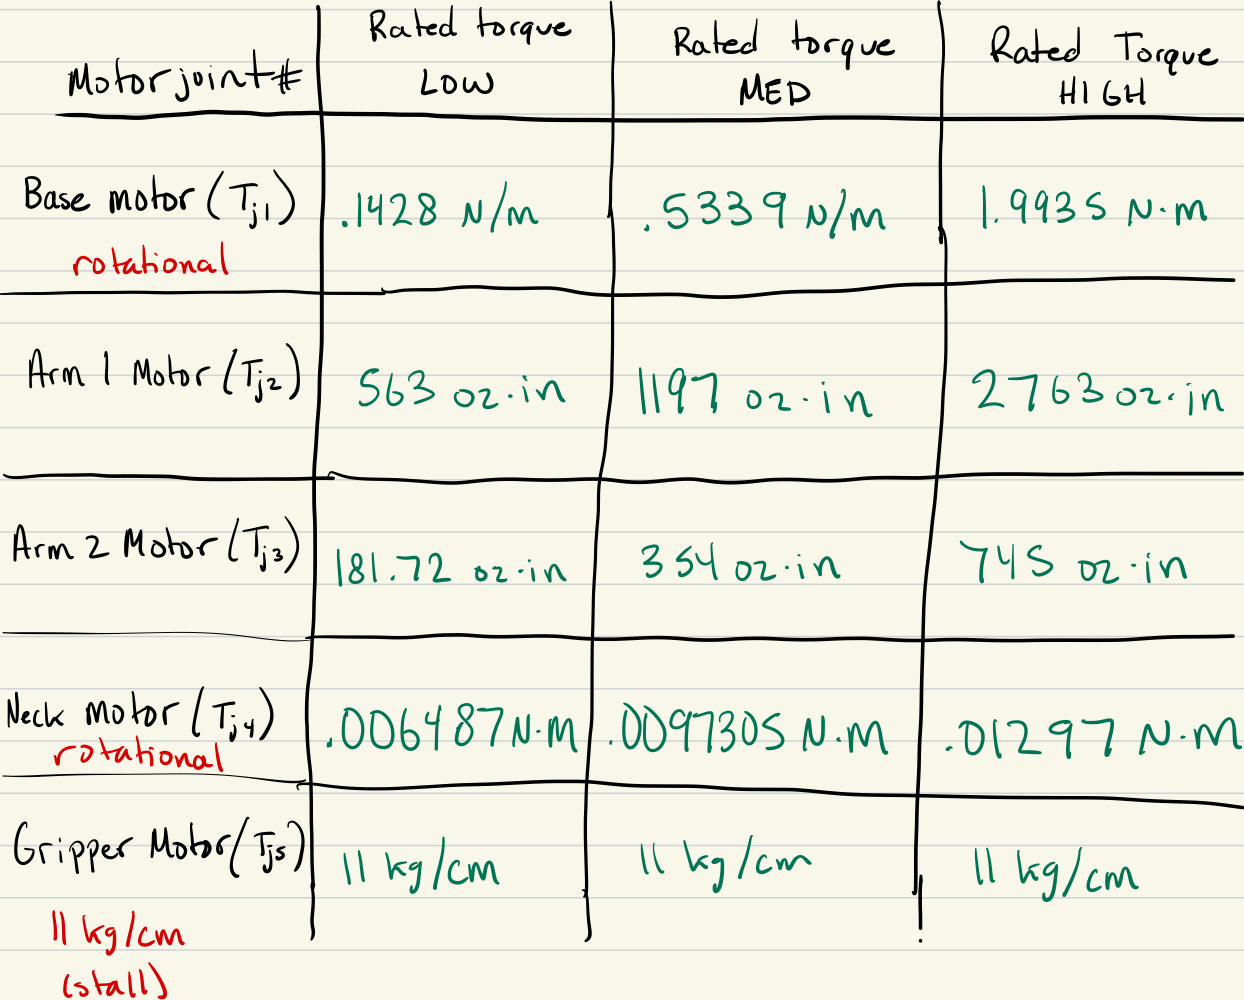 Motor joint #
Rated torque
LOW
Rated torque
MED
Rated Torque
HIGH
Base motor (Tj1)
rotational
.1428 N/m
.5339 N/m
1.9935 N·m
Arm 1 Motor (Tj2)
563 oz·in
1197 oz·in
2763 oz·in
Arm 2 Motor (Tj3)
181.72 oz·in
354 oz·in
745 oz·in
Neck motor (Tj4)
rotational
.006487 N·m
.009730S N·m
.01297 N·m
Gripper Motor (Tj5)
11 kg/cm
(stall)
11 kg/cm
11 kg/cm
11 kg/cm